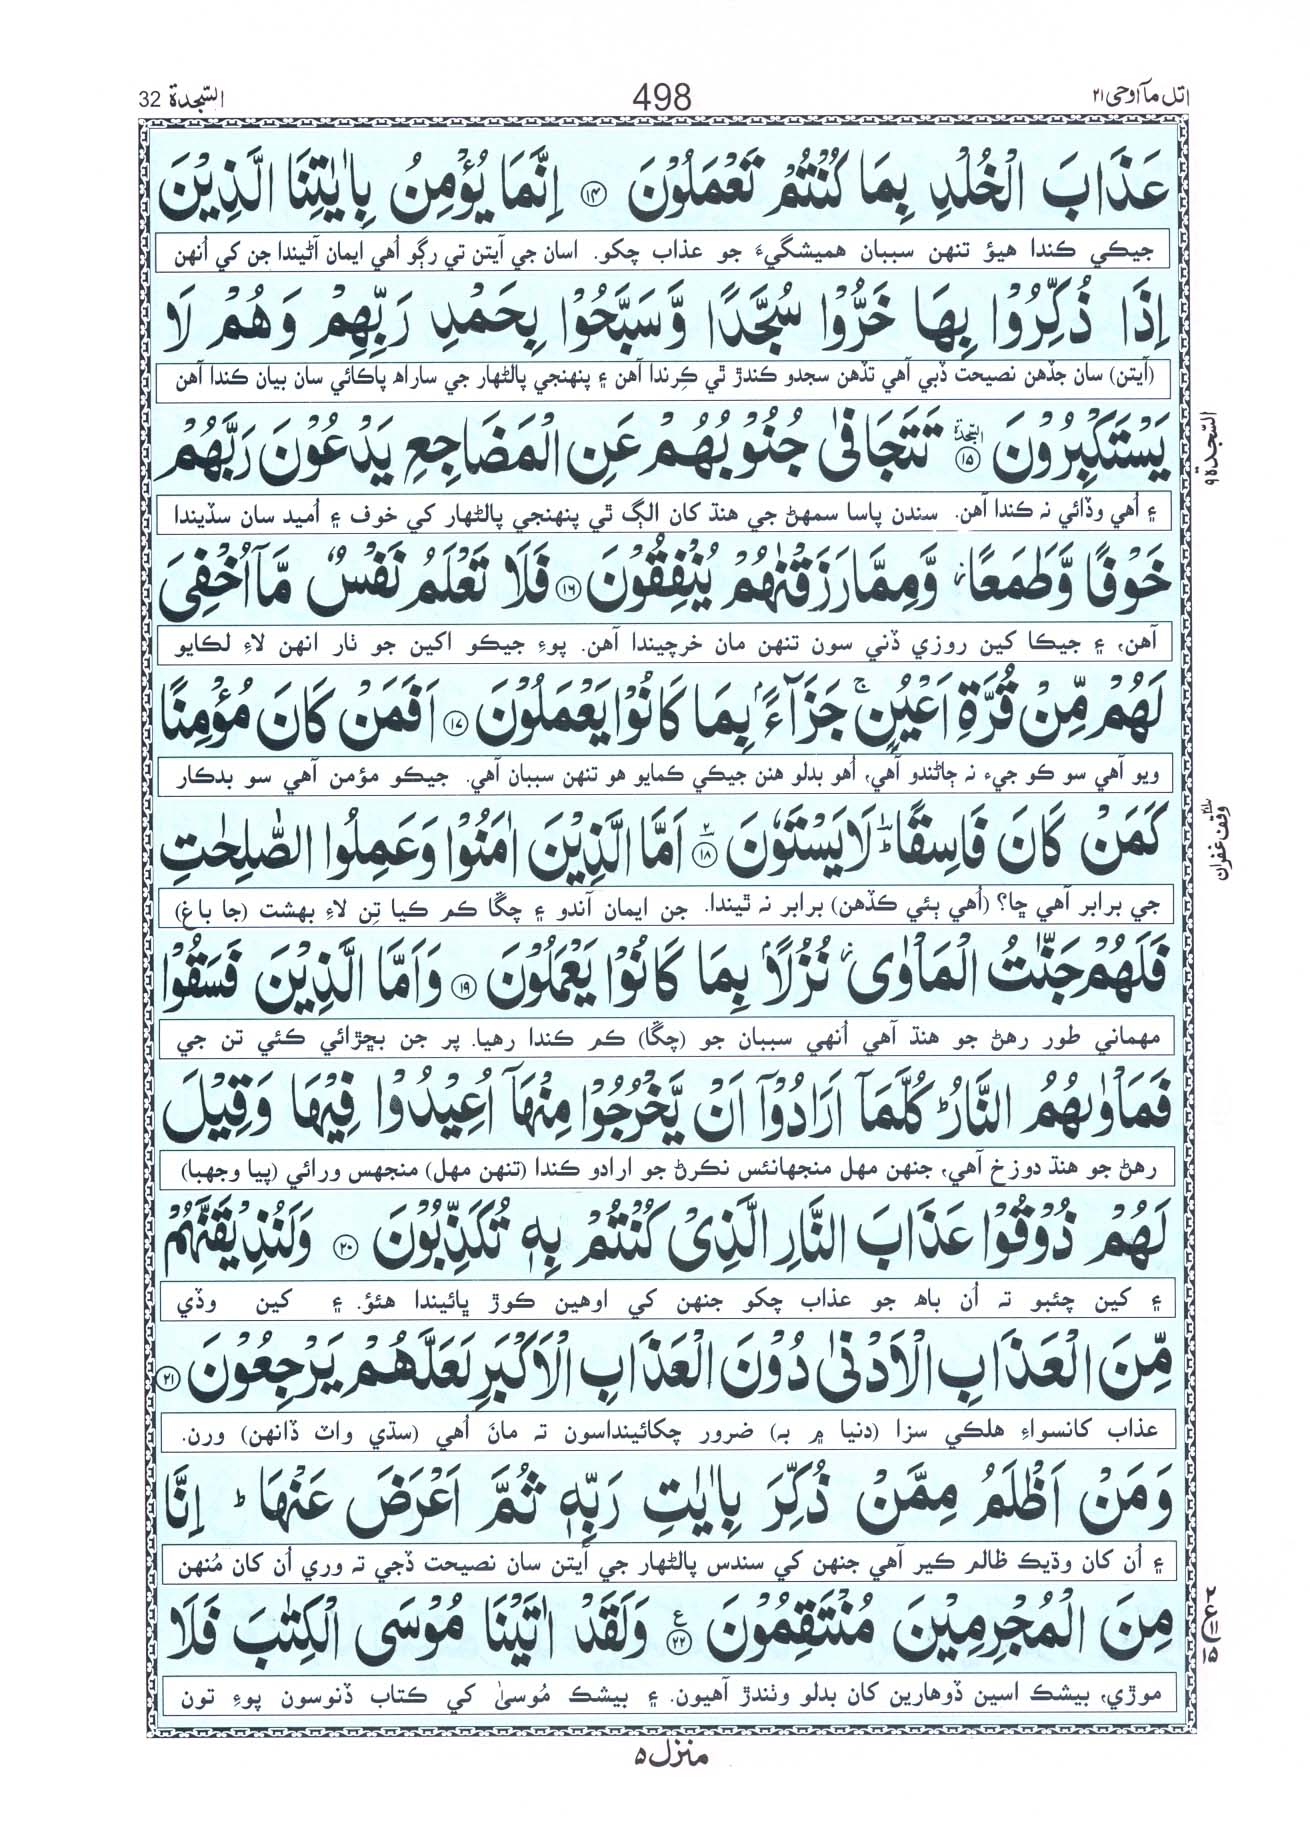 اتل مآ اوحى ٢١
498
السّجدة 32
عَذَابَ الْخُلْدِ بِمَا كُنْتُمْ تَعْمَلُوْنَ ۝۱۴ اِنَّمَا يُؤْمِنُ بِاٰيٰتِنَا الَّذِيْنَ
جيڪي ڪندا هيؤ تنهن سببان هميشگيءَ جو عذاب چکو. اسان جي آيتن تي رڳو اُهي ايمان آڻيندا جن کي اُنهن
اِذَا ذُكِّرُوْا بِهَا خَرُّوْا سُجَّدًا وَّسَبَّحُوْا بِحَمْدِ رَبِّهِمْ وَهُمْ لَا
(آيتن) سان جڏهن نصيحت ڏبي آهي تڏهن سجدو ڪندڙ ٿي ڪِرندا آهن ۽ پنهنجي پالڻهار جي ساراھ پاڪائي سان بيان ڪندا آهن
يَسْتَكْبِرُوْنَ ۝۱۵ السجدة تَتَجَافٰى جُنُوْبُهُمْ عَنِ الْمَضَاجِعِ يَدْعُوْنَ رَبَّهُمْ
السّجدة ۹
۽ اُهي وڏائي نہ ڪندا آهن. سندن پاسا سمهڻ جي هنڌ کان الڳ ٿي پنهنجي پالڻهار کي خوف ۽ اُميد سان سڏيندا
خَوْفًا وَّطَمَعًا ز وَّمِمَّا رَزَقْنٰهُمْ يُنْفِقُوْنَ ۝۱۶ فَلَا تَعْلَمُ نَفْسٌ مَّآ اُخْفِىَ
آهن، ۽ جيڪا کين روزي ڏني سون تنهن مان خرچيندا آهن. پوءِ جيڪو اکين جو ٺار انهن لاءِ لڪايو
لَهُمْ مِّنْ قُرَّةِ اَعْيُنٍ ۚ جَزَآءًۢ بِمَا كَانُوْا يَعْمَلُوْنَ ۝۱۷ اَفَمَنْ كَانَ مُؤْمِنًا
ويو آهي سو ڪو جيءَ نہ ڄاڻندو آهي، اُهو بدلو هنن جيڪي ڪمايو هو تنهن سببان آهي. جيڪو مؤمن آهي سو بدڪار
كَمَنْ كَانَ فَاسِقًا ؕ لَا يَسْتَوٗنَ ۝۱۸ اَمَّا الَّذِيْنَ اٰمَنُوْا وَعَمِلُوا الصّٰلِحٰتِ
وقف غفران
جي برابر آهي ڇا؟ (اُهي ٻئي ڪڏهن) برابر نہ ٿيندا. جن ايمان آندو ۽ چڱا ڪم ڪيا تِن لاءِ بهشت (جا باغ)
فَلَهُمْ جَنّٰتُ الْمَاْوٰى ز نُزُلًۢا بِمَا كَانُوْا يَعْمَلُوْنَ ۝۱۹ وَاَمَّا الَّذِيْنَ فَسَقُوْا
مهماني طور رهڻ جو هنڌ آهي اُنهي سببان جو (چڱا) ڪم ڪندا رهيا. پر جن بڇڙائي ڪئي تن جي
فَمَاْوٰىهُمُ النَّارُ ؕ كُلَّمَآ اَرَادُوْٓا اَنْ يَّخْرُجُوْا مِنْهَآ اُعِيْدُوْا فِيْهَا وَقِيْلَ
رهڻ جو هنڌ دوزخ آهي، جنهن مهل منجهانئس نڪرڻ جو ارادو ڪندا (تنهن مهل) منجهس ورائي (پيا وجهبا)
لَهُمْ ذُوْقُوْا عَذَابَ النَّارِ الَّذِىْ كُنْتُمْ بِهٖ تُكَذِّبُوْنَ ۝۲۰ وَلَنُذِيْقَنَّهُمْ
۽ کين چئبو تہ اُن باھ جو عذاب چکو جنهن کي اوهين ڪوڙ ڀائيندا هئؤ. ۽ کين وڏي
مِّنَ الْعَذَابِ الْاَدْنٰى دُوْنَ الْعَذَابِ الْاَكْبَرِ لَعَلَّهُمْ يَرْجِعُوْنَ ۝۲۱
عذاب کانسواءِ هلڪي سزا (دنيا ۾ بہ) ضرور چکائينداسون تہ مانَ اُهي (سڌي واٽ ڏانهن) ورن.
وَمَنْ اَظْلَمُ مِمَّنْ ذُكِّرَ بِاٰيٰتِ رَبِّهٖ ثُمَّ اَعْرَضَ عَنْهَا ؕ اِنَّا
۽ اُن کان وڌيڪ ظالم ڪير آهي جنهن کي سندس پالڻهار جي آيتن سان نصيحت ڏجي تہ وري اُن کان مُنهن
مِنَ الْمُجْرِمِيْنَ مُنْتَقِمُوْنَ ۝۲۲ ع وَلَقَدْ اٰتَيْنَا مُوْسَى الْكِتٰبَ فَلَا
۲ ع ۱۱ ۱۵
موڙي، بيشڪ اسين ڏوهارين کان بدلو وٺندڙ آهيون. ۽ بيشڪ مُوسىٰ کي ڪتاب ڏنوسون پوءِ تون
منزل ۵